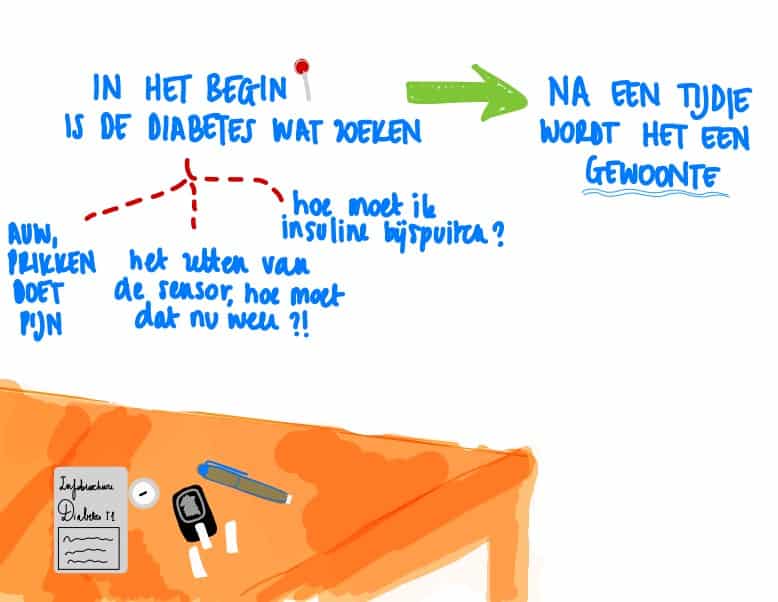 IN HET BEGIN
IS DE DIABETES WAT ZOEKEN
NA EEN TIJDJE
WORDT HET EEN
GEWOONTE
AUW,
PRIKKEN
DOET
PIJN
het zetten van
de sensor, hoe moet
dat nu weer ?!
hoe moet ik
insuline bijspuiten?
Infobrochure
Diabetes T1